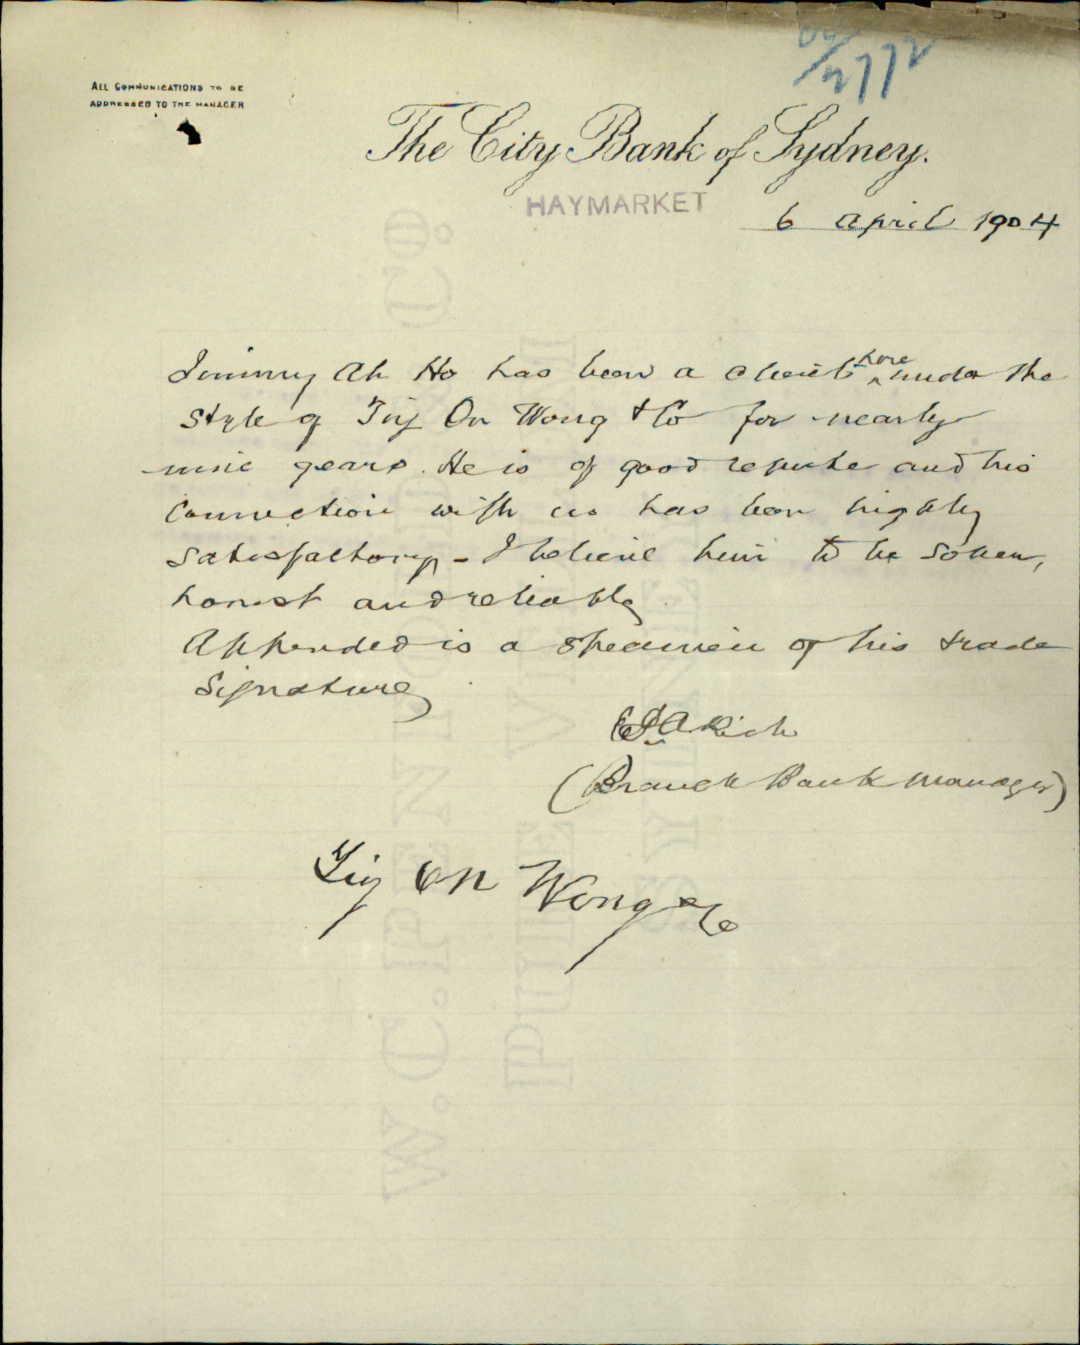 04/2772
ALL COMMUNICATIONS TO BE
ADDRESSED TO THE MANAGER
The City Bank of Sydney.
HAYMARKET
6 April 1904
Jimmy Ah Ho has been a client here under the
style of Tiy On Wong & Co for nearly
nine years. He is of good repute and his
connection with us has been highly
satisfactory - I believe him to be sober,
honest and reliable
Appended is a specimen of his trade
signature
Rich
(Branch Bank Manager)
On Wong & Co
W. C. PENFOLD & CO.
PURE
SYDNEY